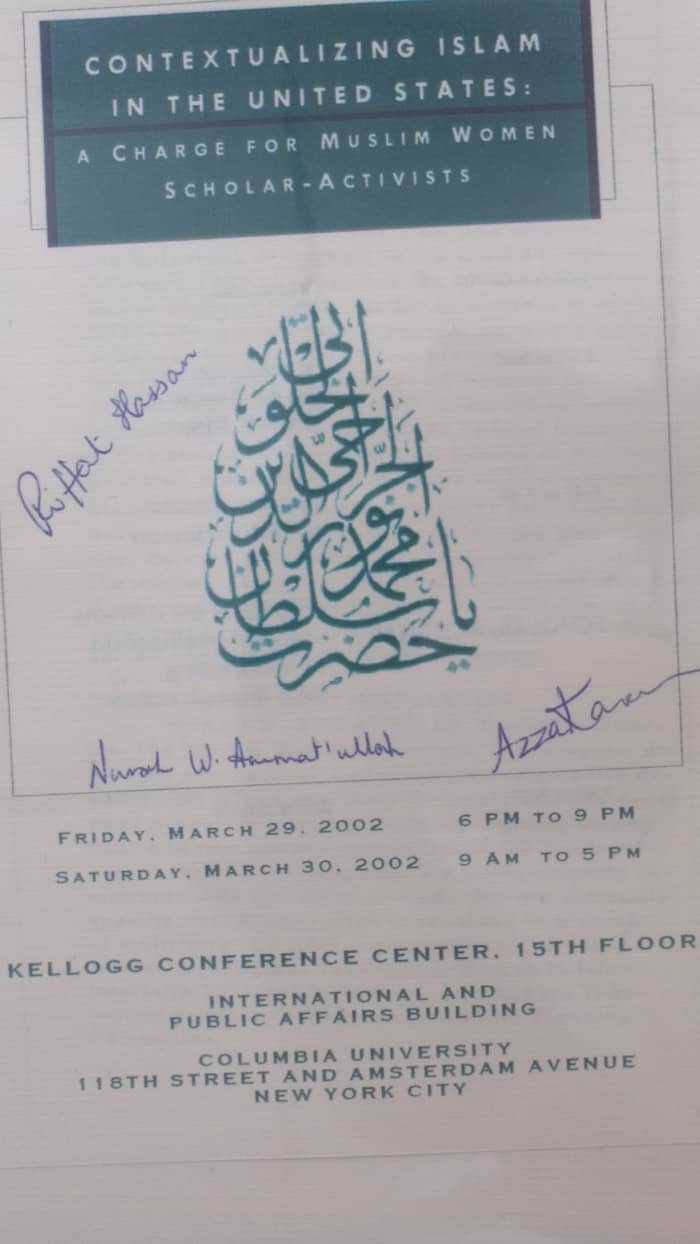 CONTEXTUALIZING ISLAM
IN THE UNITED STATES:
A CHARGE FOR MUSLIM WOMEN
SCHOLAR-ACTIVISTS
يا حضرت سلطان محمد نور الدين الجراحى الخلوتى
Riffat Hassan
Nurah W. Ammat'ullah
Azza Karam
FRIDAY, MARCH 29, 2002 6 PM TO 9 PM
SATURDAY, MARCH 30, 2002 9 AM TO 5 PM
KELLOGG CONFERENCE CENTER, 15TH FLOOR
INTERNATIONAL AND
PUBLIC AFFAIRS BUILDING
COLUMBIA UNIVERSITY
118TH STREET AND AMSTERDAM AVENUE
NEW YORK CITY